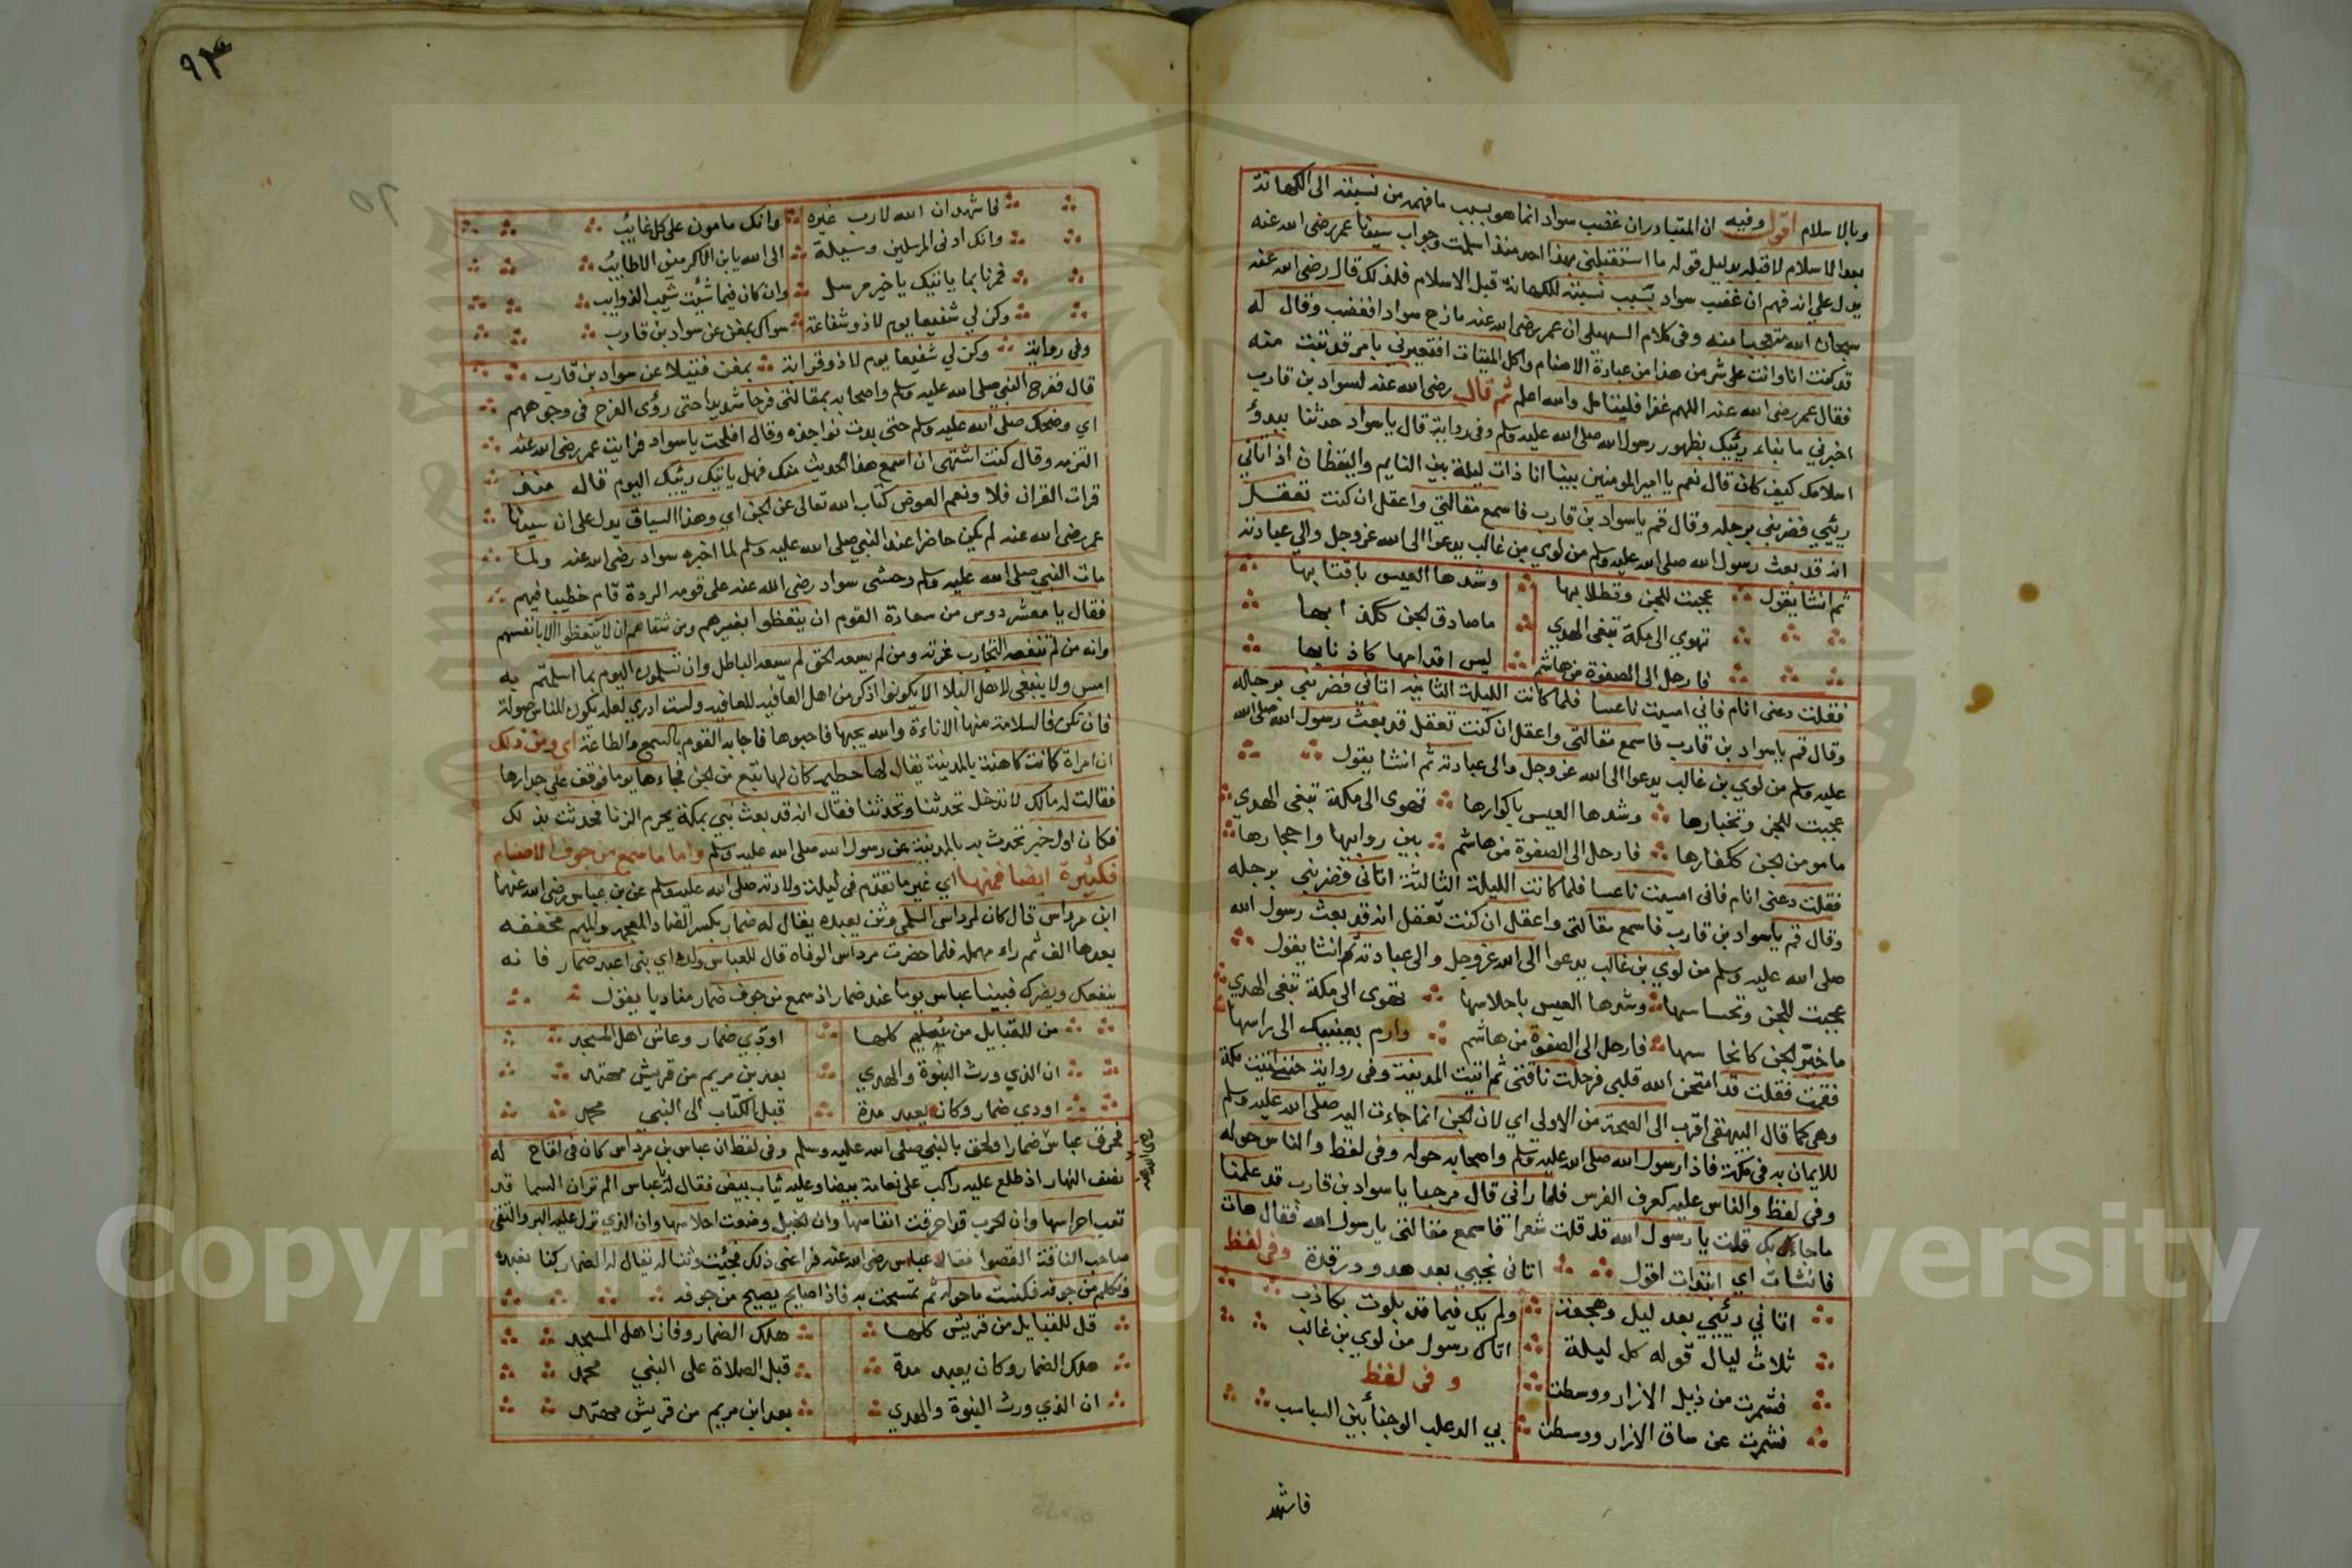 وبالاسلام اقول وفيه ان المتبادر ان غضب سواد انما هو بسبب ما فهمه من نسبته الى الكهانة
بعد الاسلام لا قبله بدليل قوله ما استقبلني بهذا احد منذ اسلمت وجواب سيدنا عمر رضى الله عنه
يدل على انه فهم ان غضب سواد بسبب نسبته للكهانة قبل الاسلام فلذلك قال رضى الله عنه
سبحان الله متعجبا منه وفى كلام السهيلى ان عمر رضى الله عنه مازح سوادا فغضب وقال له
قد كنت انا وانت على شر من هذا من عبادة الاصنام واكل الميتات افتعيرني بامر قد تبت منه
فقال عمر رضى الله عنه اللهم غفرا فليتامل والله اعلم ثم قال رضى الله عنه لسواد بن قارب
اخبرني ما نباء رئيك بظهور رسول الله صلى الله عليه وسلم وفى رواية قال يا سواد حدثنا ببدؤ
اسلامك كيف كان قال نعم يا امير المومنين بينا انا ذات ليلة بين النايم واليقظان اذ اتاني
رئيي فضربنى برجله وقال قم يا سواد بن قارب فاسمع مقالتي واعقل ان كنت تعقل
انه قد بعث رسول الله صلى الله عليه وسلم من لوي بن غالب يدعوا الى الله عز وجل والي عبادته
ثم انشا يقول عجبت للجن وتطلابها وشدها العيس باقتابها
تهوي الى مكة تبغى الهدي ما صادق الجن ككذابها
فارحل الى الصفوة من هاشم ليس اقدامها كاذنابها
فقلت دعنى انام فاني امسيت ناعسا فلما كانت الليلة الثانية اتاني فضربني برجله
وقال قم يا سواد بن قارب فاسمع مقالتى واعقل ان كنت تعقل قد بعث رسول الله صلى الله
عليه وسلم من لوي بن غالب يدعوا الى الله عز وجل والى عبادته ثم انشا يقول
عجبت للجن وتخبارها وشدها العيس باكوارها تهوى الى مكة تبغى الهدي
ما مومن الجن ككفارها فارحل الى الصفوة من هاشم بين روابيها واحجارها
فقلت دعنى انام فانى امسيت ناعسا فلما كانت الليلة الثالثة اتانى فضربني برجله
وقال قم يا سواد بن قارب فاسمع مقالتى واعقل ان كنت تعقل انه قد بعث رسول الله
صلى الله عليه وسلم من لوي بن غالب يدعوا الى الله عز وجل والى عبادته ثم انشا يقول
عجبت للجن وتحساسها وشدها العيس باحلاسها تهوى الى مكة تبغى الهدي
ما خير الجن كانجاسها فارحل الى الصفوة من هاشم وارم بعينيك الى راسها
فقمت فقلت قد امتحن الله قلبي فرحلت ناقتى ثم اتيت المدينة وفى رواية حتى اتيت مكة
وهى كما قال البيهقى اقرب الى الصحة من الاولى اي لان الجن انما جاءت اليه صلى الله عليه وسلم
للايمان به فى مكة فاذا رسول الله صلى الله عليه وسلم واصحابه حوله وفى لفظ والناس حوله
وفى لفظ والناس عليه كعرف الفرس فلما رانى قال مرحبا يا سواد بن قارب قد علمنا
ما جاء بك قلت يا رسول الله قد قلت شعرا فاسمع مقالتى يا رسول الله فقال هات
فانشات اي ابتدات اقول اتانى نجيي بعد هدو ورقدة وفى لفظ
اتاني رئيي بعد ليل وهجعة ولم يك فيما قد بلوت بكاذب
ثلاث ليال قوله كل ليلة اتاك رسول من لوي بن غالب
فشمرت من ذيل الازار ووسطت وفى لفظ
فشمرت عن ساق الازار ووسطت بي الدعلب الوجنا بين السباسب
فاشهد
٩٣
٥٢
فاشهد ان الله لا رب غيره وانك مامون على كل غايب
وانك ادنى المرسلين وسيلة الى الله يا بن الاكرمين الاطايب
فمرنا بما ياتيك يا خير مرسل وان كان فيما شئت شيب الذوايب
وكن لي شفيعا يوم لا ذو شفاعة سواك بمغن عن سواد بن قارب
وفى رواية وكن لي شفيعا يوم لا ذو قرابة بمغن فتيلا عن سواد بن قارب
قال ففرح النبي صلى الله عليه وسلم واصحابه بمقالتى فرحا شديدا حتى رؤى الفرح فى وجوههم
اي وضحك صلى الله عليه وسلم حتى بدت نواجذه وقال افلحت يا سواد فرايت عمر رضى الله عنه
التزمه وقال كنت اشتهى ان اسمع هذا الحديث منك فهل ياتيك رئيك اليوم قال منذ
قرات القران فلا ونعم العوض كتاب الله تعالى عن الجن اي وهذا السياق يدل على ان سيدنا
عمر رضى الله عنه لم يكن حاضرا عند النبي صلى الله عليه وسلم لما اخبره سواد رضى الله عنه ولما
مات النبي صلى الله عليه وسلم وخشى سواد رضى الله عنه على قومه الردة قام خطيبا فيهم
فقال يا معشر دوس من سعادة القوم ان يتعظوا بغيرهم ومن شقاهم ان لا يتعظوا الا بانفسهم
وانه من لم تنفعه التجارب غرته ومن لم يسعه الحق لم يسعه الباطل وان تسلمون اليوم بما اسلمتم به
امس ولا ينبغى لاهل البلا الا يكونوا اذكر من اهل العافية للعافيه ولست ادري لعله يكون للناس صولة
فان تكن فالسلامة منها الاناءة والله يحبها فاحبوها فاجابه القوم بالسمع والطاعة اي ومن ذلك
ان امراة كانت كاهنة بالمدينة يقال لها حطيمه كان لها تبع من الجن فجاءها يوما فوقف على جدارها
فقالت له مالك لا تدخل تحدثنا ونحدثنا فقال انه قد بعث نبي بمكة يحرم الزنا فحدثت بذلك
فكان اول خبر تحدث به بالمدينة عن رسول الله صلى الله عليه وسلم واما ما سمع من جوف الاصنام
فكثيرة ايضا فمنها اي غير ما تقدم فى ليلة ولادته صلى الله عليه وسلم عن بن عباس رضى الله عنهما
ابن مرداس قال كان لمرداس السلمى وثن يعبده يقال له ضمار بكسر الضاد المعجمه والميم مخففه
بعدها الف ثم راء مهمله فلما حضرت مرداس الوفاه قال للعباس ولده اي بنى اعبد ضمار فانه
ينفعك ويضرك فبينا عباس يوما عند ضمار اذ سمع من جوف ضمار مناديا يقول
من للقبايل من سليم كلها اودي ضمار وعاش اهل المسجد
ان الذي ورث النبوة والهدي بعد بن مريم من قريش مهتد
اودي ضمار وكان يعبد مدة قبل الكتاب الى النبي محمد
فحرق عباس ضمارا ولحق بالنبي صلى الله عليه وسلم وفى لفظ ان عباس بن مرداس كان فى لقاح له
رضى الله عنه
نصف النهار اذ طلع عليه راكب على نعامة بيضا وعليه ثياب بيض فقال له يا عباس الم تر ان السما قد
تعب احراسها وان الحرب قد احرقت انفاسها وان الخيل وضعت احلاسها وان الذي نزل عليه البر والتقى
صاحب الناقة القصوا فقال عباس رضى الله عنه فراعنى ذلك فجئيت وثنا له يقال له الضمار كنا نعبده
ونكلم من جوفه فكنست ما حوله ثم تمسحت به فاذا صايح يصيح من جوفه
قل للقبايل من قريش كلها هلك الضمار وفاز اهل المسجد
هلك الضمار وكان يعبد مدة قبل الصلاة على النبي محمد
ان الذي ورث النبوة والهدي بعد ابن مريم من قريش مهتد